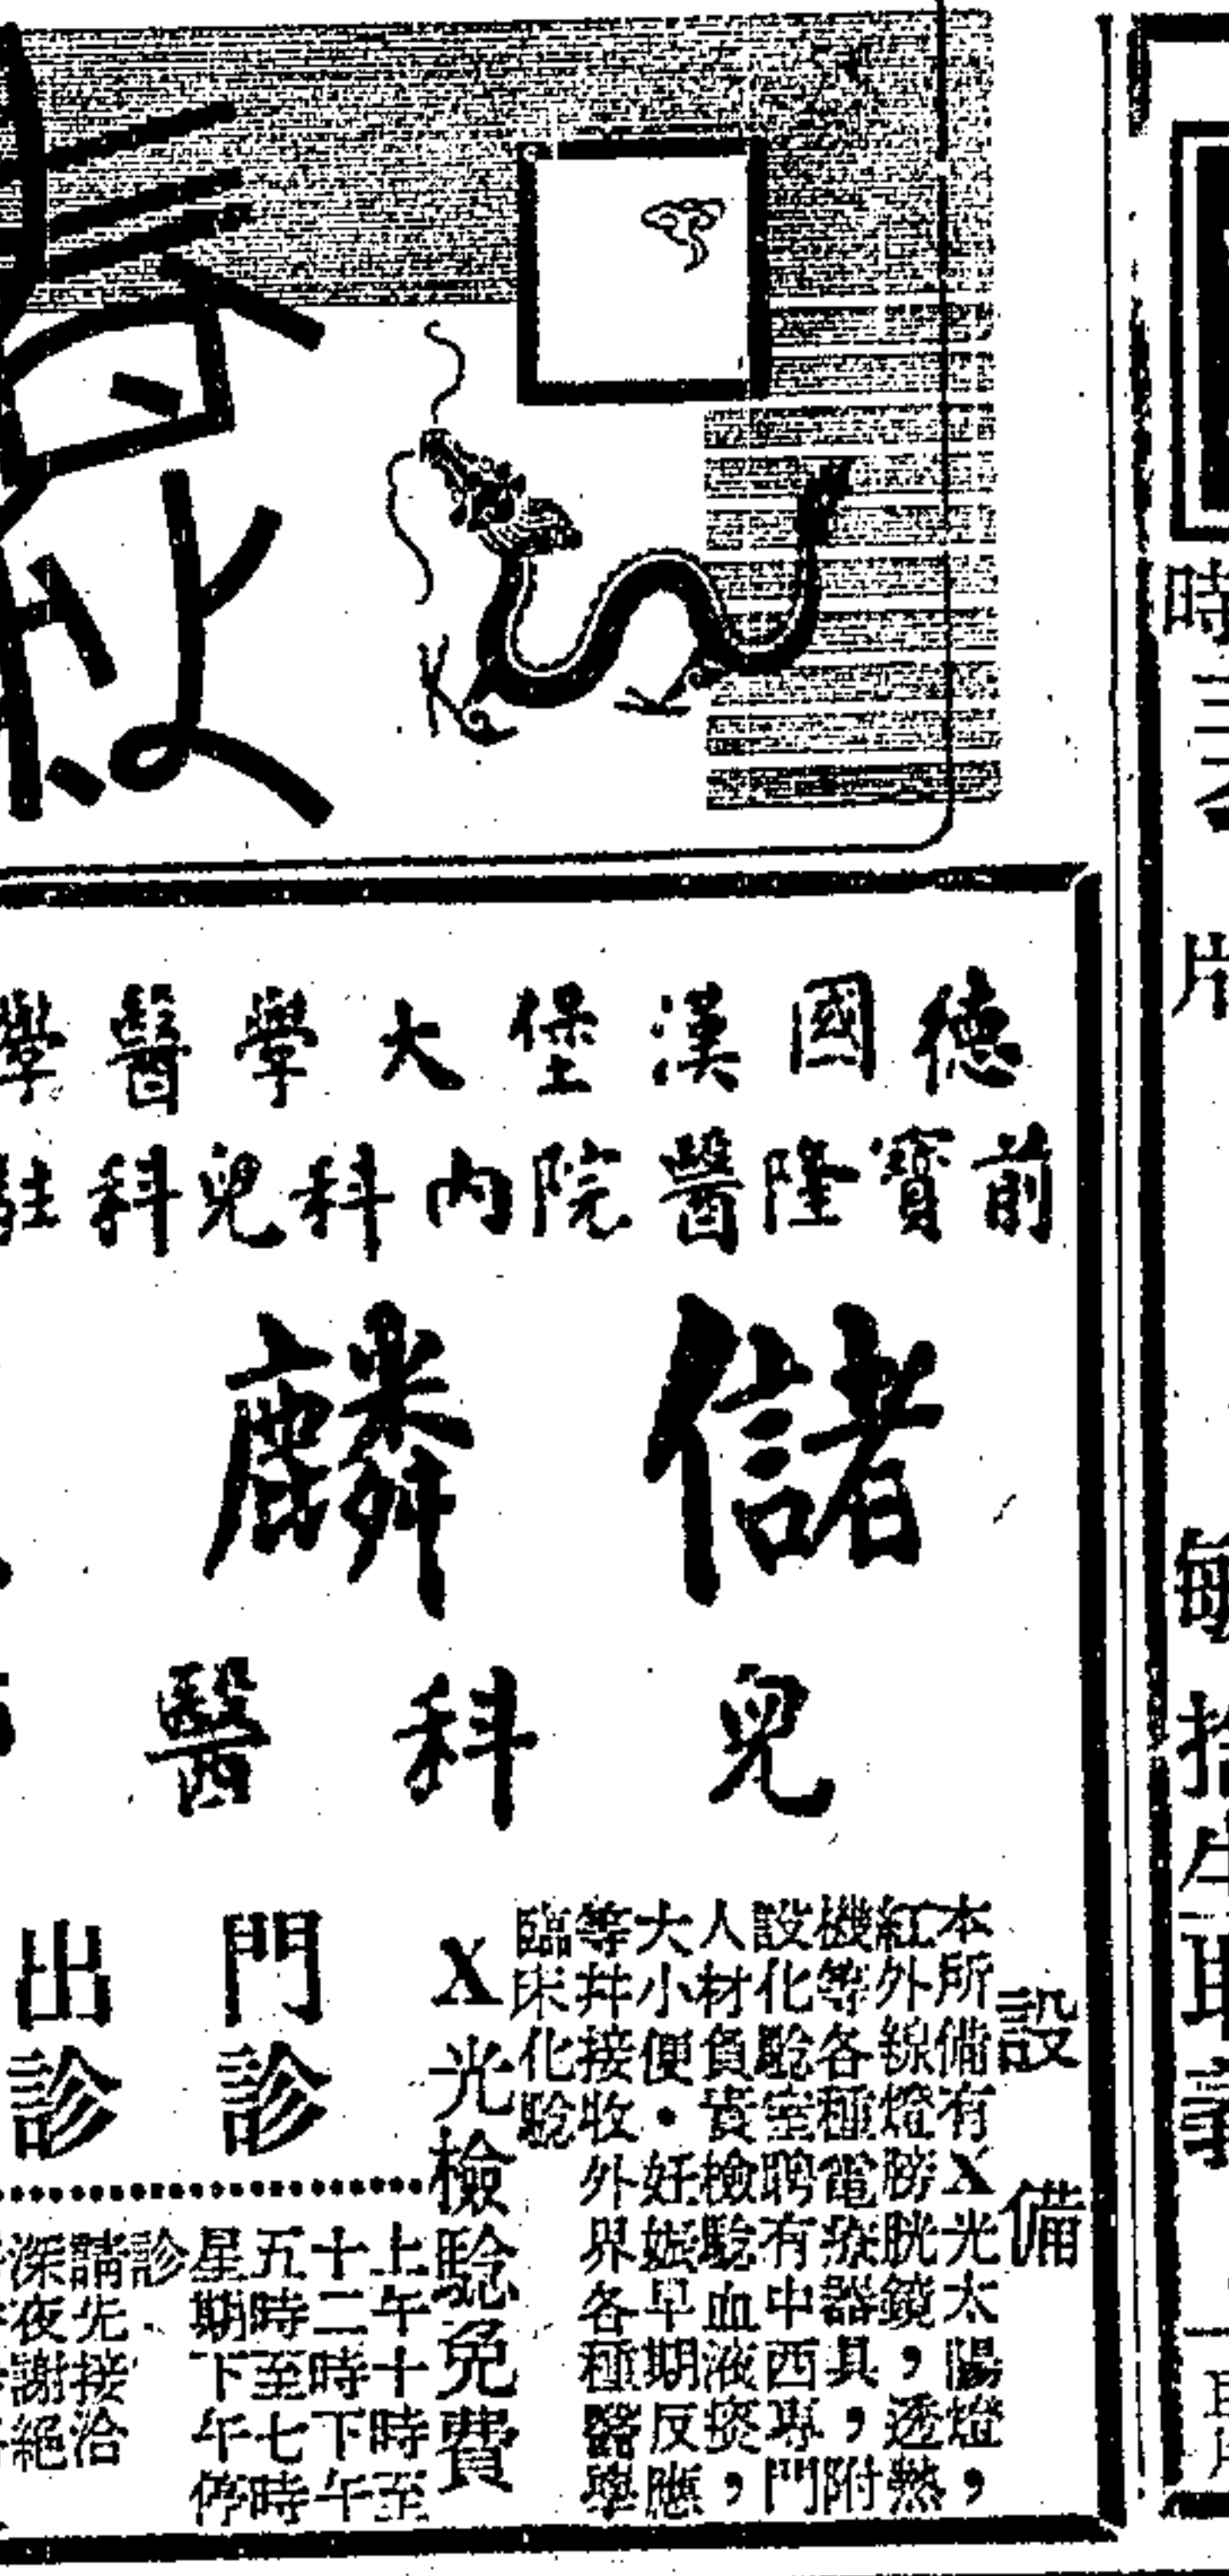 德國漢堡大學醫學
前寶隆醫院內科兒科駐
儲麟
兒科醫
設備
本所備有X光太陽燈，
紅外線燈膀胱鏡，透熱
機等各種電療器具，附
設化驗室聘有中西專門
人材負責檢驗血液痰，
大小便・妊娠早期反應
等幷接收外界各種醫學
臨床化驗
X光檢驗免費
門診
上午十時至
十二時下午
五時至七時
星期下午停
診
出診
請先接洽
深夜謝絕